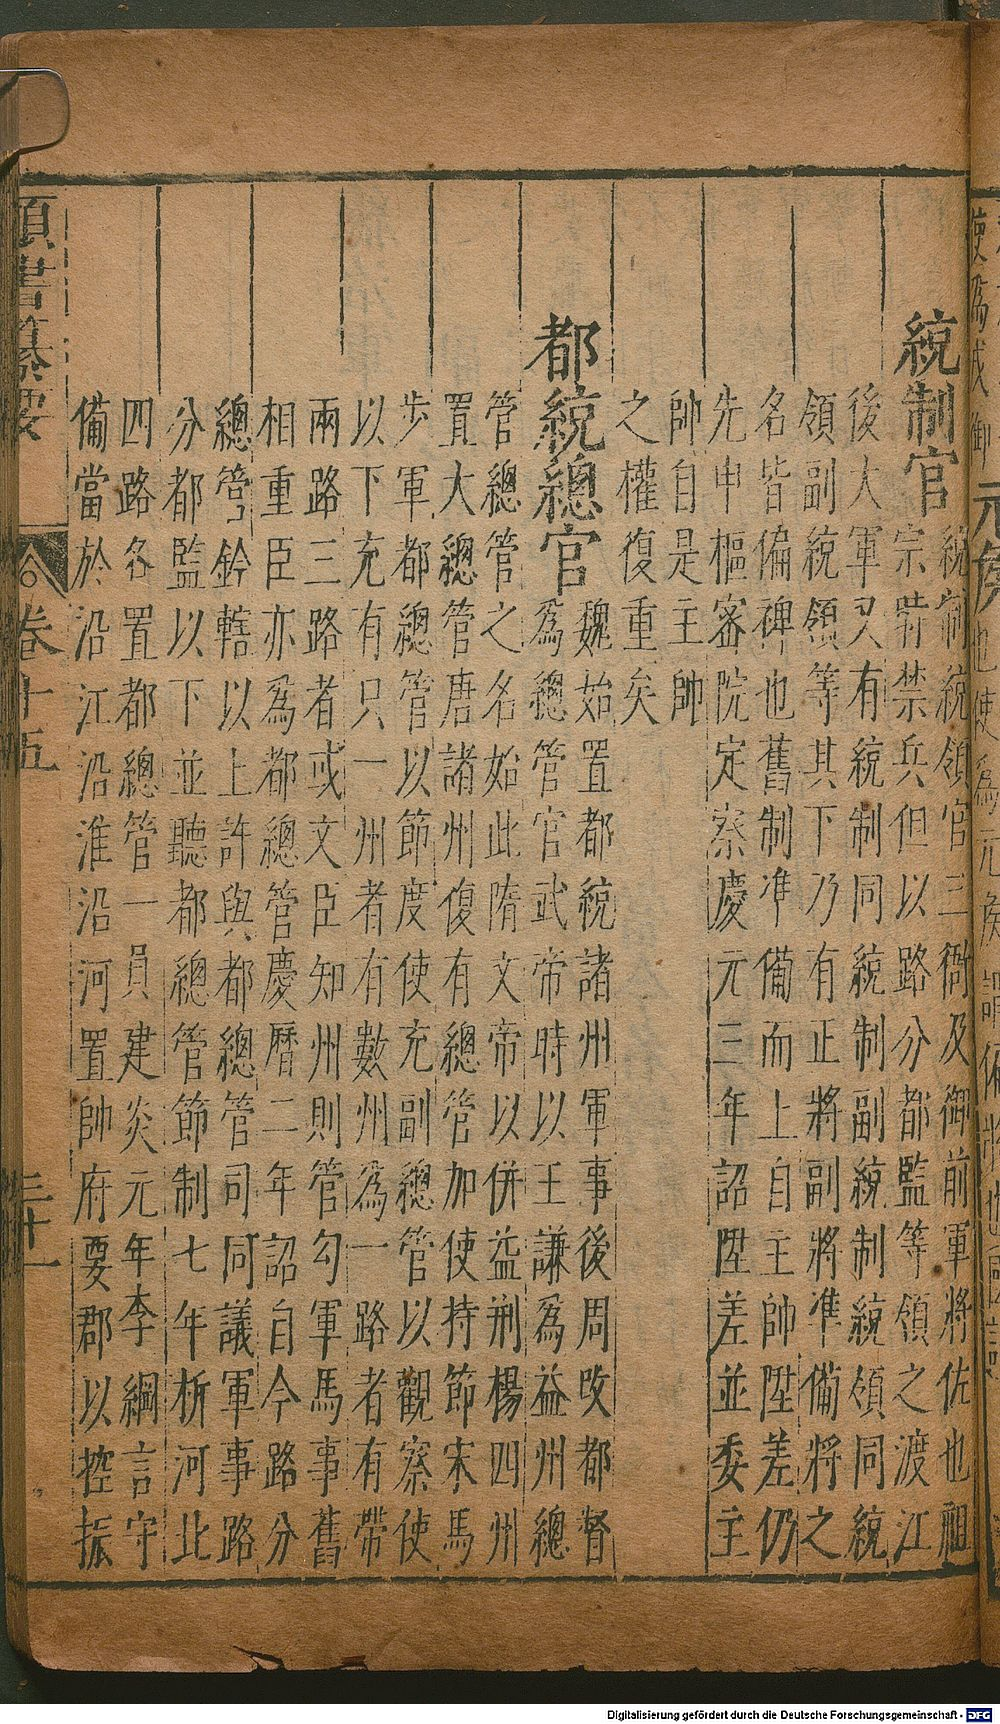 統制官
統制統領官三衙及御前軍將佐也祖
宗時禁兵但以路分都監等領之渡江
後大軍又有統制同統制副統制統領同統
領副統領等其下乃有正將副將準備將之
名皆偏裨也舊制準備而上自主帥陞差仍
先申樞密院定察慶元三年詔陞差並委主
帥自是主帥
之權復重矣
都統總官
魏始置都統諸州軍事後周改都督
為總管官武帝時以王謙為益州總
管總管之名始此隋文帝以併益荆楊四州
置大總管唐諸州復有總管加使持節宋馬
步軍都總管以節度使充副總管以觀察使
以下充有只一州者有數州為一路者有帶
兩路三路者或文臣知州則管勾軍馬事舊
相重臣亦為都總管慶曆二年詔自今路分
總管鈐轄以上許與都總管司同議軍事路
分都監以下並聽都總管節制七年析河北
四路各置都總管一員建炎元年李綱言守
備當於沿江沿淮沿河置帥府要郡以控振
類書纂要 卷十五
Digitalisierung gefördert durch die Deutsche Forschungsgemeinschaft - DFG